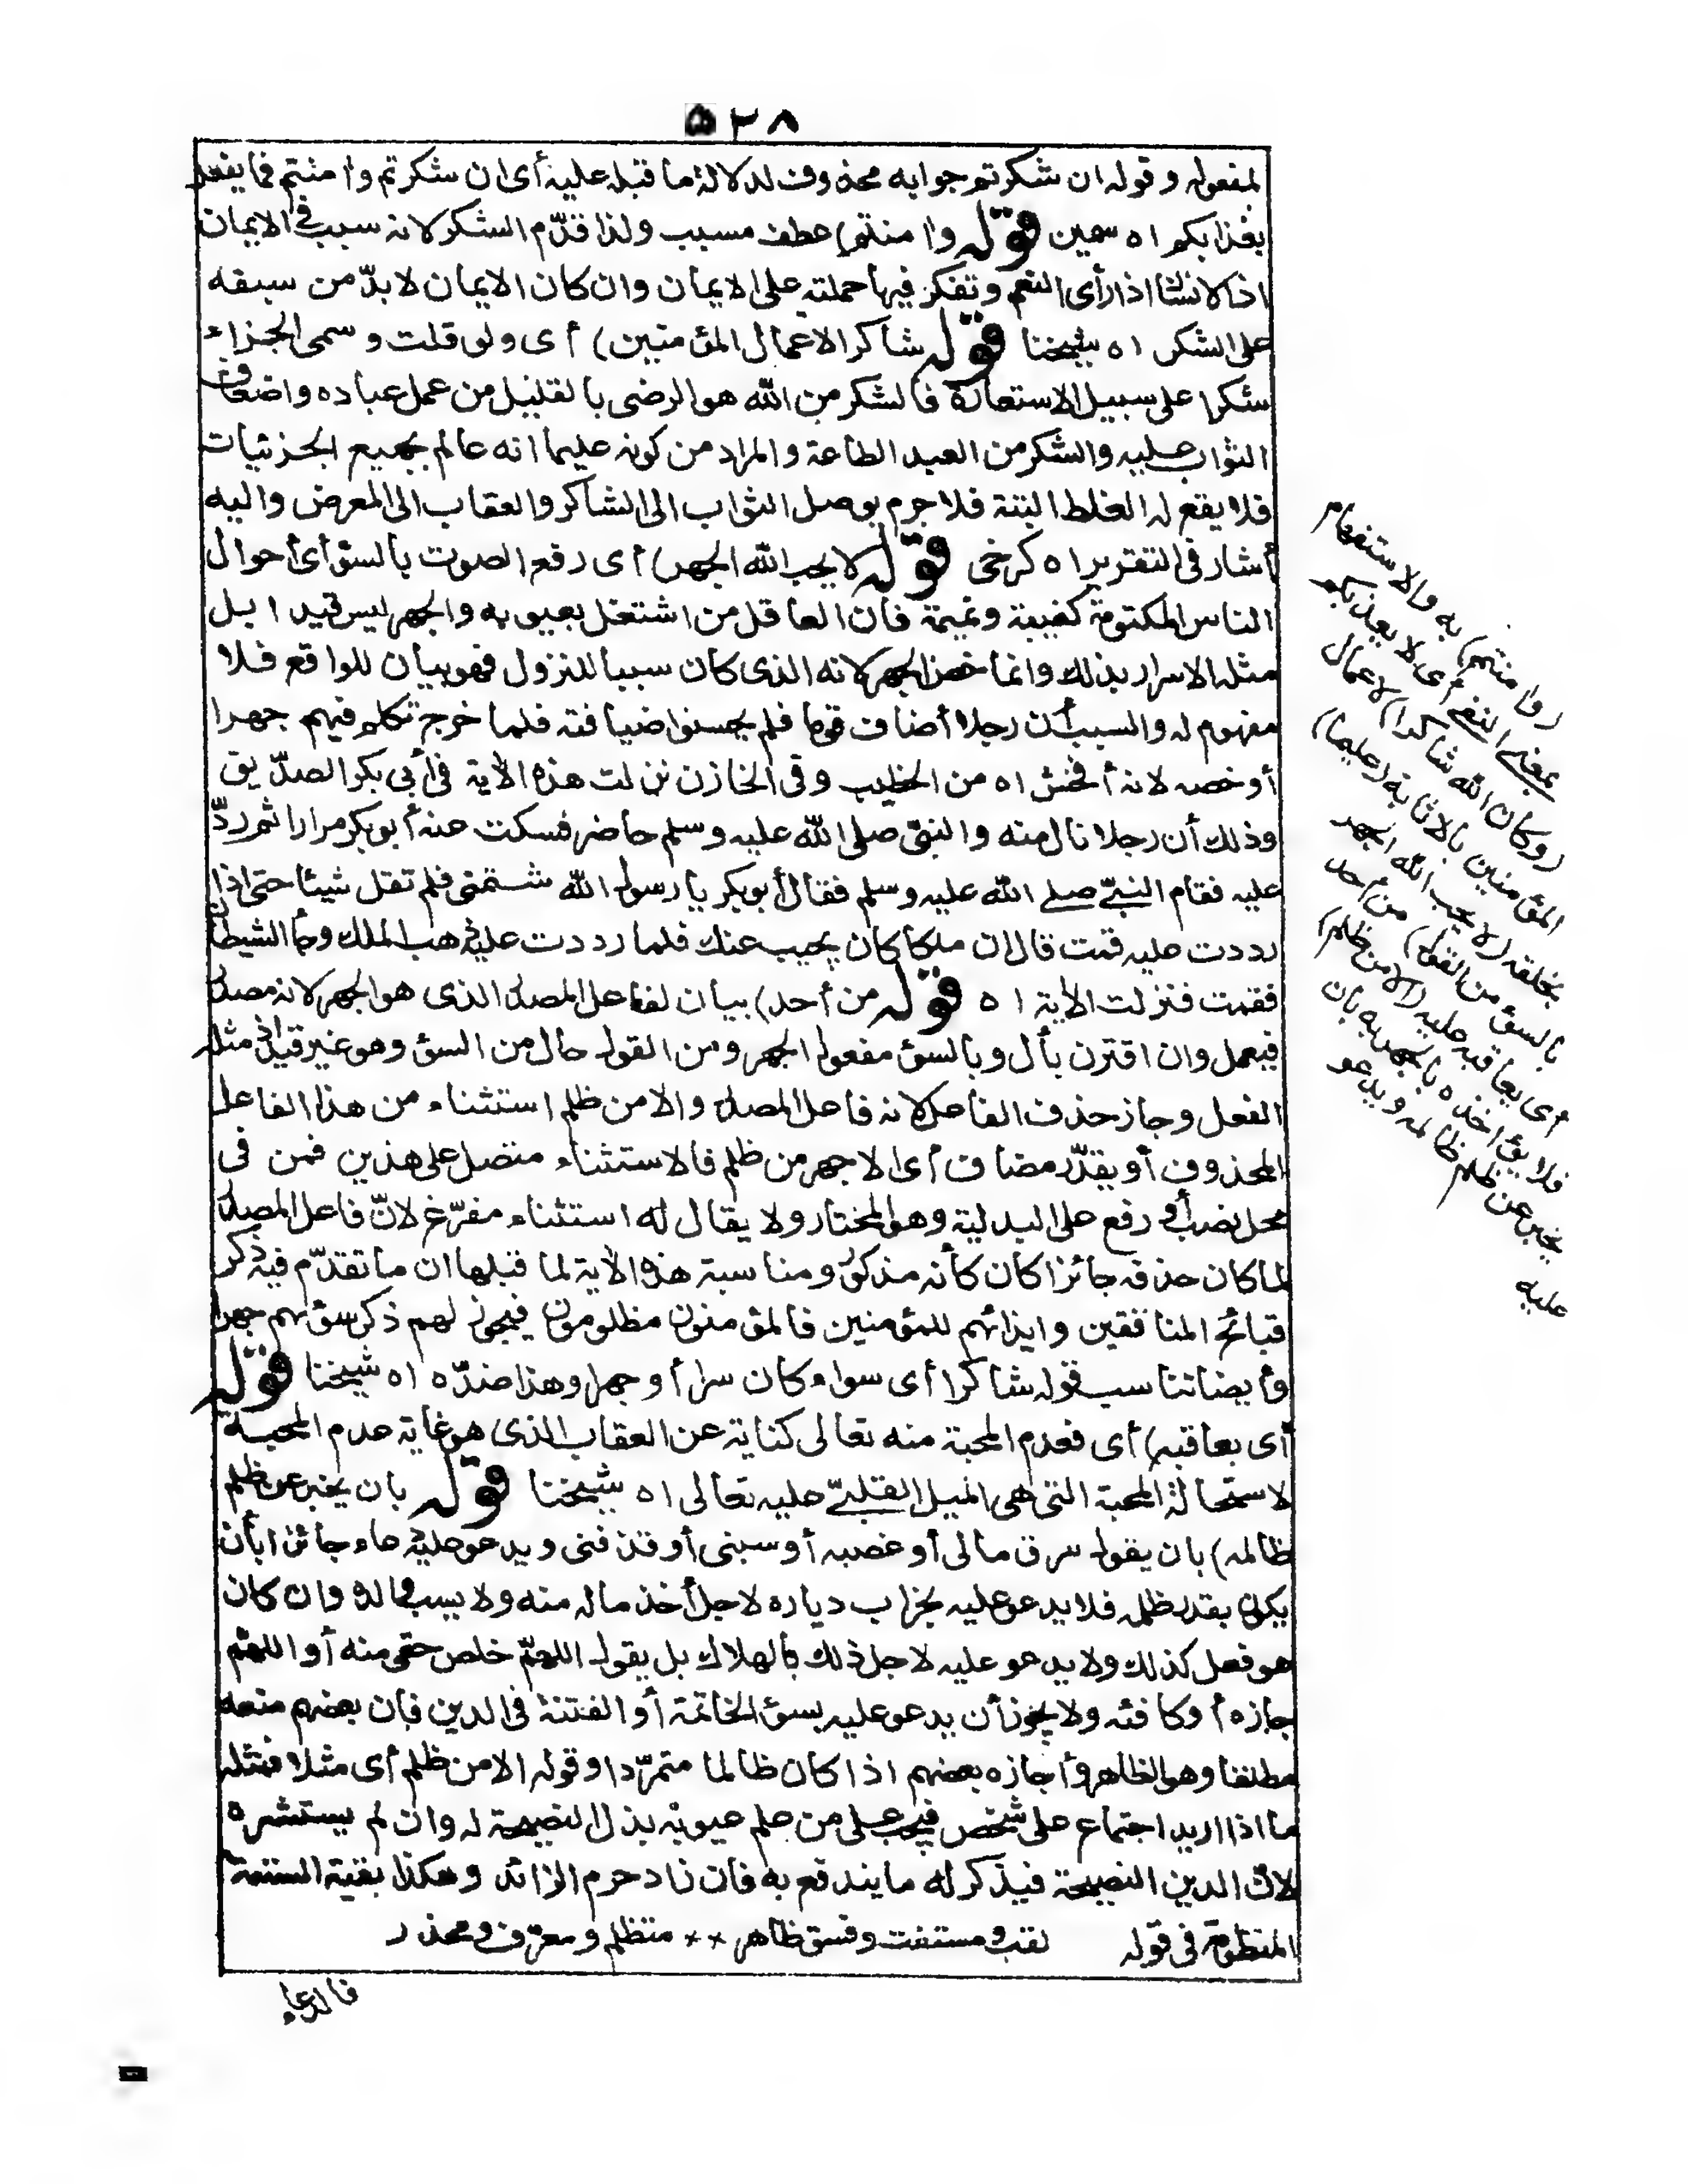 ٥٢٨
لمفعوله وقوله ان شكرتم جوابه محذوف لدلالة ما قبله عليه أى ان شكرتم وامنتم فما يفعل
بعذابكم اه سمين قوله وامنتم) عطف مسبب ولذا قدّم الشكر لانه سبب فى الايمان
اذ الانسان اذا رأى النعم وتفكر فيها حملته على الايمان وان كان الايمان لا بدّ من سبقه
على الشكر اه شيخنا قوله شاكرا لاعمال المؤمنين) أى ولو قلت وسمى الجزاء
شكرا على سبيل الاستعارة فالشكر من الله هو الرضى بالقليل من عمل عباده واضعاف
الثواب عليه والشكر من العبد الطاعة والمراد من كونه عليما انه عالم بجميع الجزئيات
فلا يقع له الغلط البتة فلا جرم يوصل الثواب الى الشاكر والعقاب الى المعرض واليه
أشار فى التقرير اه كرخى قوله لا يحب الله الجهر) أى رفع الصوت بالسؤ أى أحوال
الناس المكتومة كغيبة ونميمة فان العاقل من اشتغل بعيوبه والجهر ليس قيدا بل
مثله الاسرار بذلك وانما خص الجهر لانه الذى كان سببا للنزول فهو بيان للواقع فلا
مفهوم له والسبب أن رجلا أضاف قوما فلم يحسنوا ضيافته فلما خرج تكلم فيهم جهرا
أو خصه لانه أفحش اه من الخطيب وفى الخازن نزلت هذه الاية فى أبى بكر الصدّيق
وذلك أن رجلا نال منه والنبى صلى الله عليه وسلم حاضر فسكت عنه أبو بكر مرارا ثم ردّ
عليه فقام النبىّ صلى الله عليه وسلم فقال أبو بكر يا رسول الله شتمنى فلم تقل شيئا حتى اذا
رددت عليه قمت قال ان ملكا كان يجيب عنك فلما رددت عليه ذهب الملك وجأ الشيطان
فقمت فنزلت الاية اه قوله من أحد) بيان لفاعل المصدر الذى هو الجهر لانه مصدر
فيعمل وان اقترن بأل وبالسؤ مفعول الجهر ومن القول حال من السؤ وهو غير قيد اذ مثله
الفعل وجاز حذف الفاعل لانه فاعل المصدر والا من ظلم استثناء من هذا الفاعل
المحذوف أو يقدّر مضاف أى الا جهر من ظلم فالاستثناء متصل على هذين فمن فى
محل نصب أو رفع على البدلية وهو المختار ولا يقال له استثناء مفرّغ لانّ فاعل المصدر
لما كان حذفه جائزا كان كأنه مذكور ومناسبة هذه الاية لما قبلها ان ما تقدّم فيه ذكر
قبائح المنافقين وايذائهم للمؤمنين فالمؤمنون مظلومون فيجوز لهم ذكر سؤئهم جهرا
وأيضا تناسب قوله شاكرا أى سواء كان سرا أو جهرا وهذا ضدّه اه شيخنا قوله
أى يعاقبه) أى فعدم المحبة منه تعالى كناية عن العقاب الذى هو غاية عدم المحبة
لاستحالة المحبة التى هى الميل القلبىّ عليه تعالى اه شيخنا قوله بان يخبر عن ظلم
ظالمه) بان يقول سرق مالى أو غصبه أو سبنى أو قذفنى ويدعو عليه دعاء جائزا بأن
يكون بقدر ظلمه فلا يدعو عليه بخراب دياره لاجل أخذ ماله منه ولا يسب والده وان كان
هو فعل كذلك ولا يدعو عليه لاجل ذلك بالهلاك بل يقول اللهمّ خلص حقى منه أو اللهم
جازه أو كافئه ولا يجوز أن يدعو عليه بسؤ الخاتمة أو الفتنة فى الدين فان بعضهم منعه
مطلقا وهو الظاهر وأجازه بعضهم اذا كان ظالما متمرّدا وقوله الا من ظلم أى مثلا فمثله
ما اذا اريد اجتماع على شخص فيجب على من علم عيوبه بذل النصيحة له وان لم يستشره
لانّ الدين النصيحة فيذكر له ما يندفع به فان زاد حرم الزائد وهكذا بقية الستة
المنظومة فى قوله لقب ومستفت وفسق ظاهر ×× متظلم ومعرّف ومحذر
فالدعاء
(وامنتم) به والاستفهام
بمعنى النفى أى لا يعذبكم
(وكان الله شاكرا) لاعمال
المؤمنين بالاثابة (عليما)
بخلقه (لا يحب الله الجهر
بالسؤ من القول) من أحد
أى يعاقبه عليه (الا من ظلم)
فلا يؤاخذه بالجهر به بان
يخبر عن ظلم ظالمه ويدعو
عليه